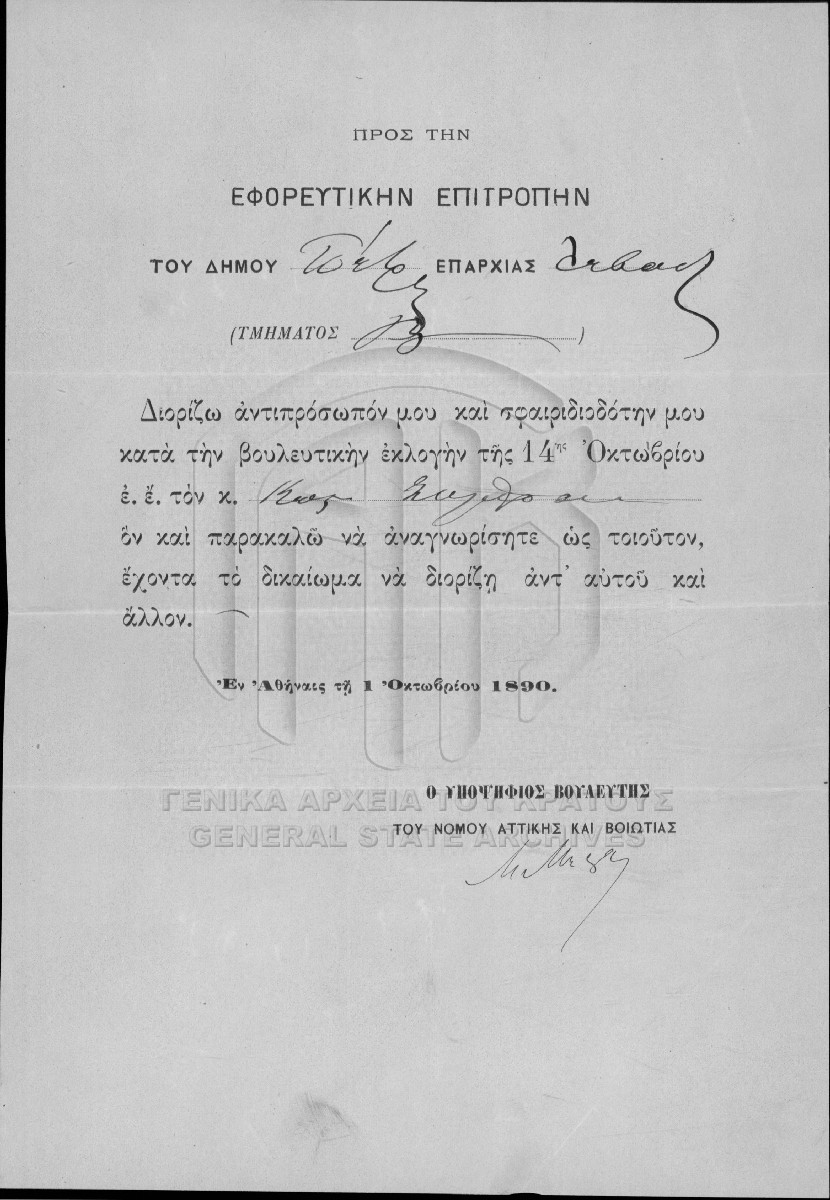 ΠΡΟΣ ΤΗΝ
ΕΦΟΡΕΥΤΙΚΗΝ ΕΠΙΤΡΟΠΗΝ
ΤΟΥ ΔΗΜΟΥ Πέτρας ΕΠΑΡΧΙΑΣ
(ΤΜΗΜΑΤΟΣ )
Διορίζω ἀντιπρόσωπόν μου καὶ σφαιριδιοδότην μου
κατὰ τὴν βουλευτικὴν ἐκλογὴν τῆς 14ης Ὀκτωβρίου
ἐ. ἔ. τὸν κ.
ὃν καὶ παρακαλῶ νὰ ἀναγνωρίσητε ὡς τοιοῦτον,
ἔχοντα τὸ δικαίωμα νὰ διορίζῃ ἀντ' αὐτοῦ καὶ
ἄλλον.
Ἐν Ἀθήναις τῇ 1 Ὀκτωβρίου 1890.
Ο ΥΠΟΨΗΦΙΟΣ ΒΟΥΛΕΥΤΗΣ
ΓΕΝΙΚΑ ΑΡΧΕΙΑ ΤΟΥ ΚΡΑΤΟΥΣ
ΤΟΥ ΝΟΜΟΥ ΑΤΤΙΚΗΣ ΚΑΙ ΒΟΙΩΤΙΑΣ
GENERAL STATE ARCHIVES